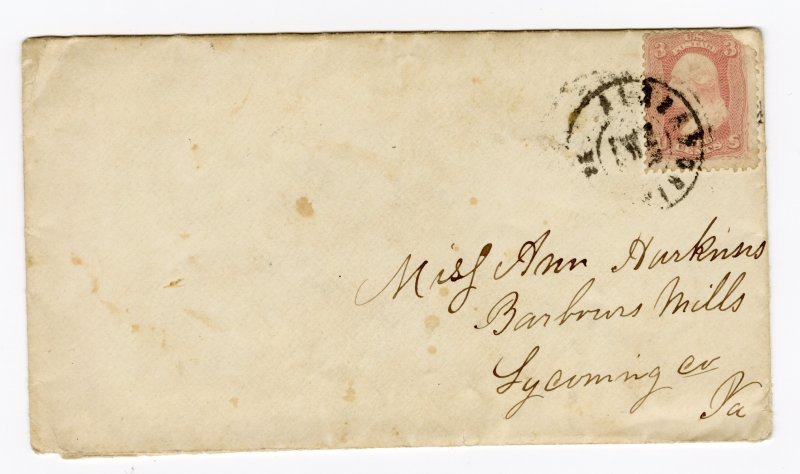 3 U.S. 3
POSTAGE
ALEXANDRIA
Miss Ann Harkins
Barbours Mills
Lycoming co
Pa